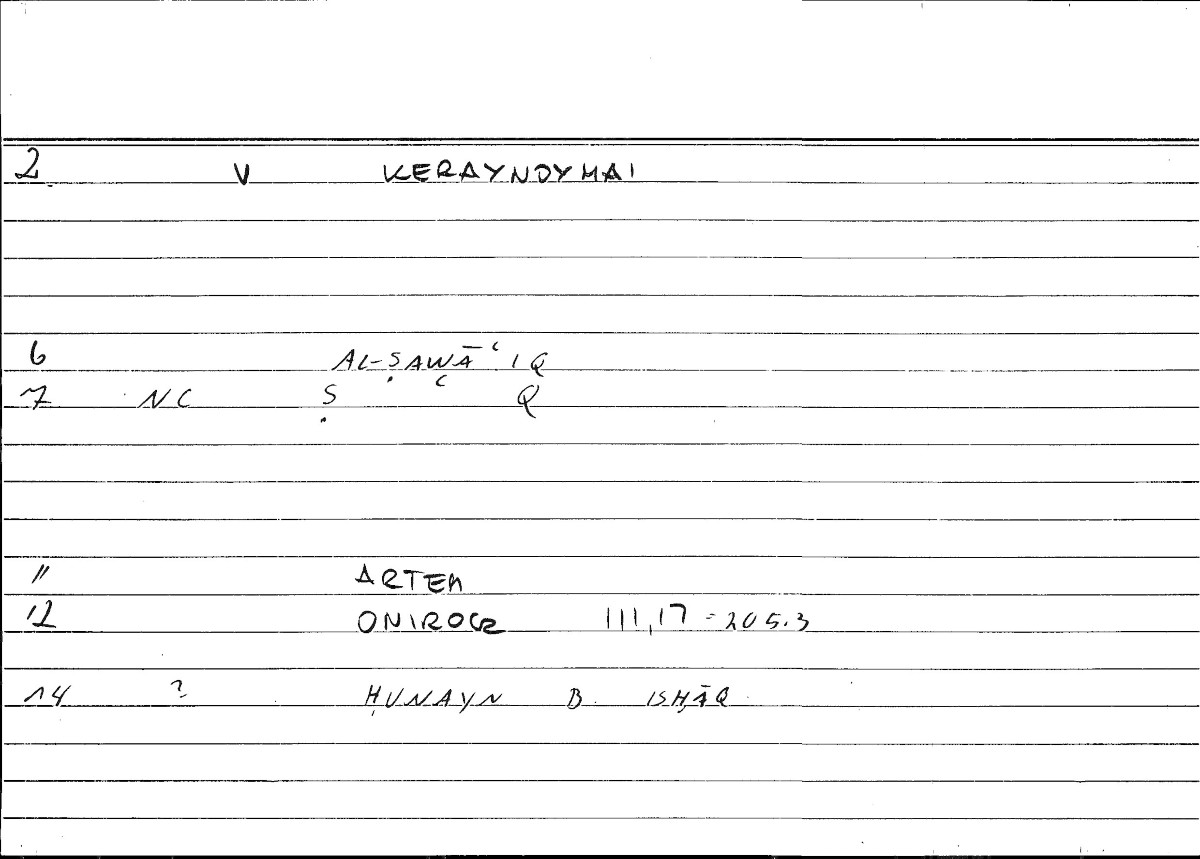 2 V KERAYNOYMAI
6 AL-ṢAWĀʿIQ
7 NC Ṣ ʿ Q
" ARTEM
12 ONIROCR III,17 = 205.3
14 ? ḤUNAYN B. ISḤĀQ